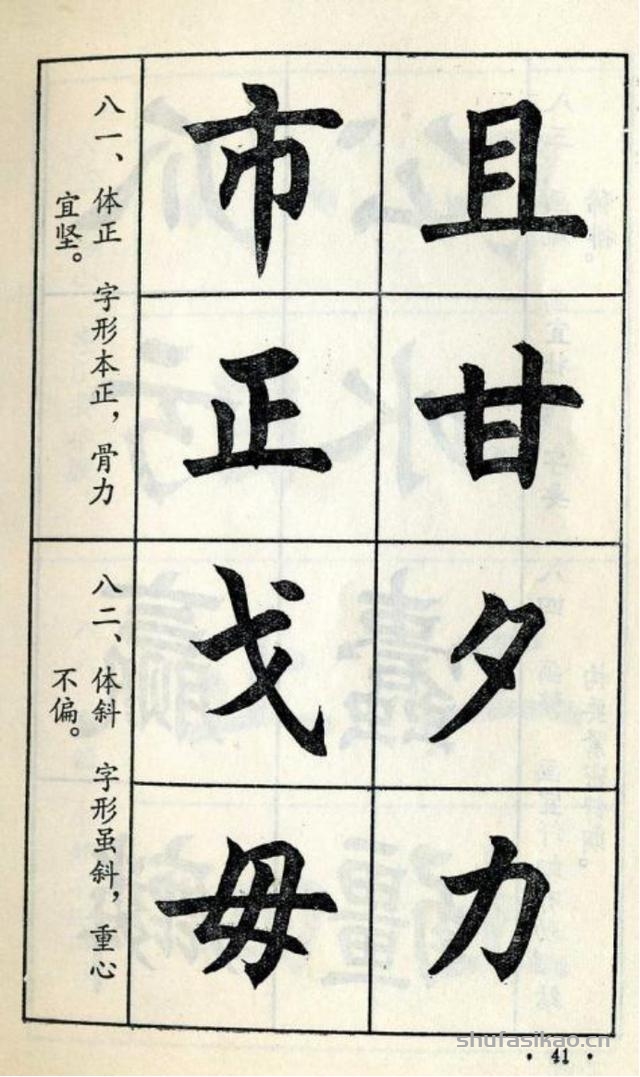 且甘
市正
八一、体正 字形本正，骨力
宜坚。
夕力
戈毋
八二、体斜 字形虽斜，重心
不偏。
shufasikao.cn
·41·